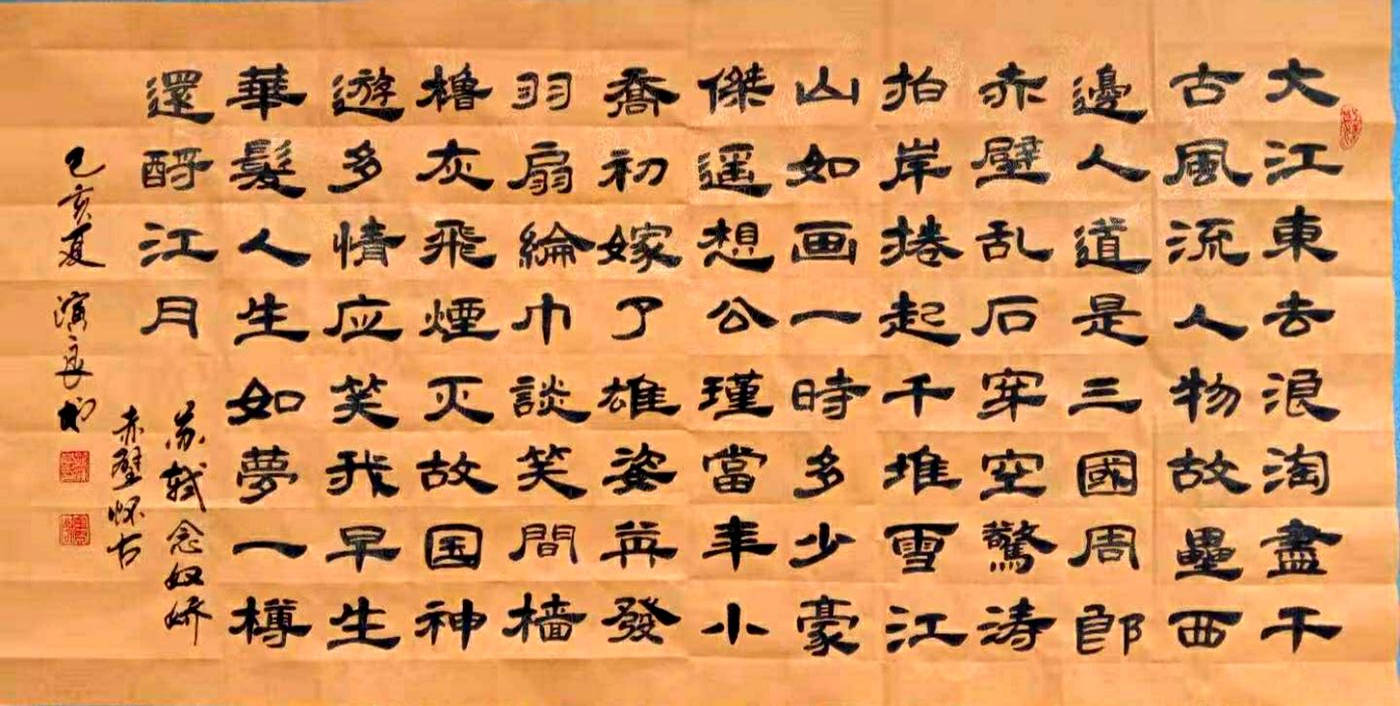 大江東去浪淘盡千
古風流人物故壘西
邊人道是三國周郎
赤壁乱石穿空驚涛
拍岸捲起千堆雪江
山如画一時多少豪
傑遥想公瑾當年小
喬初嫁了雄姿英發
羽扇綸巾談笑間樯
櫓灰飛煙灭故国神
遊多情应笑我早生
華髮人生如夢一樽
還酹江月
苏轼念奴娇
赤壁怀古
己亥夏 良书